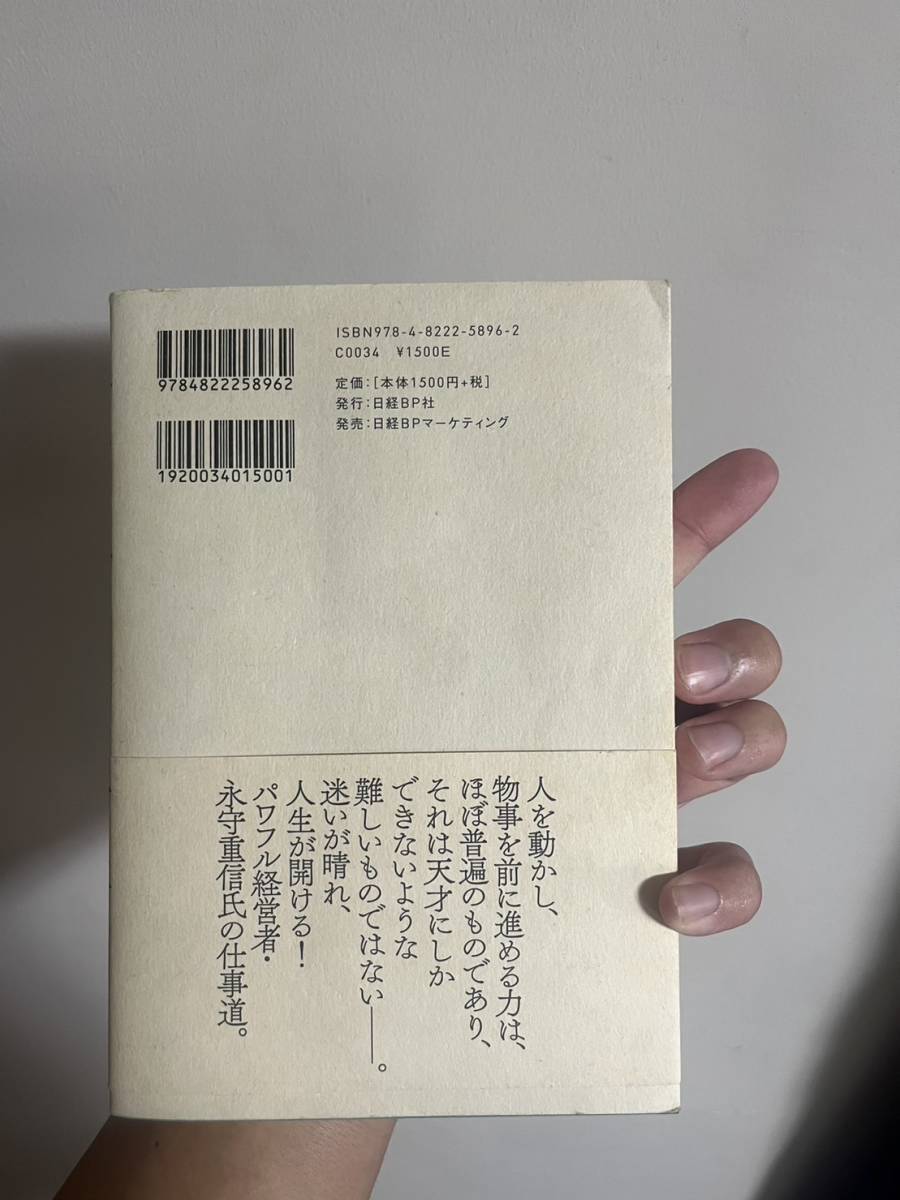 9784822258962
1920034015001
ISBN978-4-8222-5896-2
C0034 ¥1500E
定価：[本体1500円+税]
発行：日経BP社
発売：日経BPマーケティング
人を動かし、
物事を前に進める力は、
ほぼ普遍のものであり、
それは天才にしか
できないような
難しいものではない——。
迷いが晴れ、
人生が開ける！
パワフル経営者・
永守重信氏の仕事道。